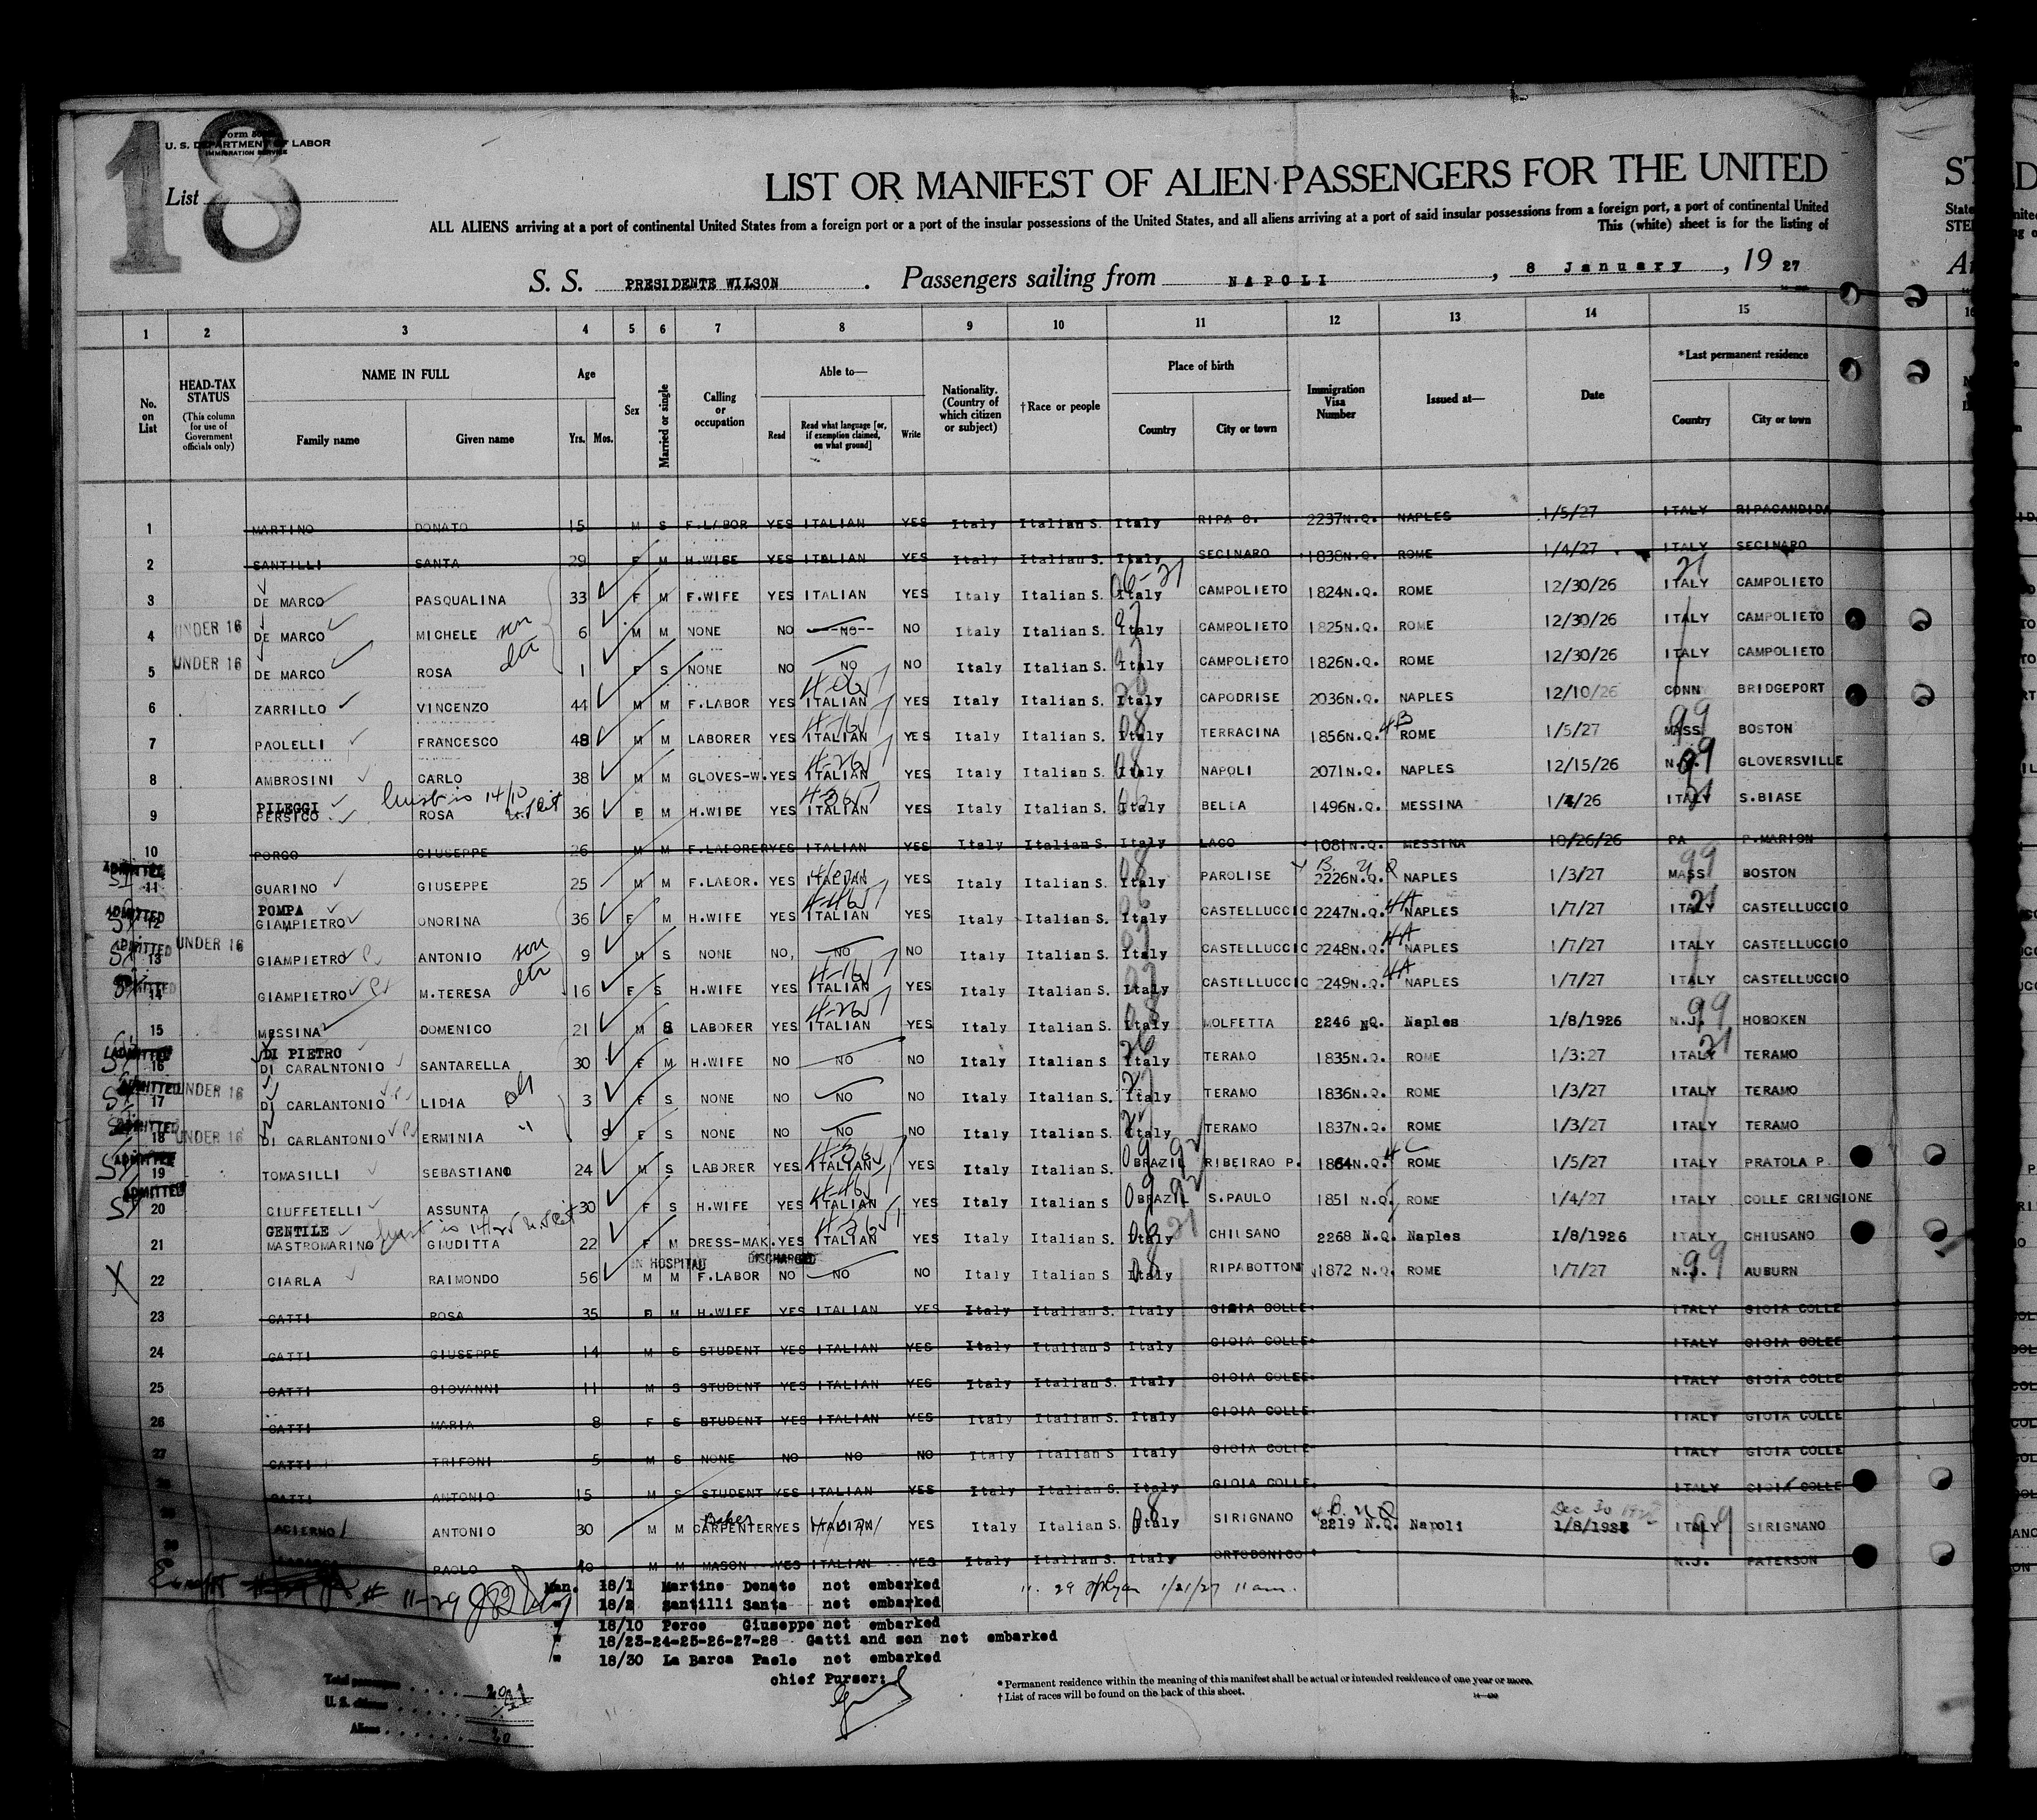 18
Form 500
U. S. DEPARTMENT OF LABOR
IMMIGRATION SERVICE
List
LIST OR MANIFEST OF ALIEN PASSENGERS FOR THE UNITED
ALL ALIENS arriving at a port of continental United States from a foreign port or a port of the insular possessions of the United States, and all aliens arriving at a port of said insular possessions from a foreign port, a port of continental United
This (white) sheet is for the listing of
S. S. PRESIDENTE WILSON . Passengers sailing from NAPOLI , 8 January , 19 27
1 2 3 4 5 6 7 8 9 10 11 12 13 14 15
No. on List
HEAD-TAX STATUS (This column for use of Government officials only)
NAME IN FULL Family name Given name
Age Yrs. Mos.
Sex
Married or single
Calling or occupation
Able to— Read Read what language [or, if exemption claimed, on what ground] Write
Nationality. (Country of which citizen or subject)
†Race or people
Place of birth Country City or town
Immigration Visa Number
Issued at—
Date
*Last permanent residence Country City or town
1 MARTINO DONATO 15 M S F.LABOR YES ITALIAN YES Italy Italian S. Italy RIPA C. 2237N.Q. NAPLES 1/5/27 ITALY RIPACANDIDA
2 SANTILLI SANTA 29 F M H.WIFE YES ITALIAN YES Italy Italian S. Italy SECINARO 1838N.Q. ROME 1/4/27 ITALY SECINARO
3 DE MARCO PASQUALINA 33 F M F.WIFE YES ITALIAN YES Italy Italian S. Italy CAMPOLIETO 1824N.Q. ROME 12/30/26 ITALY CAMPOLIETO
4 UNDER 16 DE MARCO MICHELE son 6 M M NONE NO --NO-- NO Italy Italian S. Italy CAMPOLIETO 1825N.Q. ROME 12/30/26 ITALY CAMPOLIETO
5 UNDER 16 DE MARCO ROSA 1 F S NONE NO NO NO Italy Italian S. Italy CAMPOLIETO 1826N.Q. ROME 12/30/26 ITALY CAMPOLIETO
6 ZARRILLO VINCENZO 44 M M F.LABOR YES ITALIAN YES Italy Italian S. Italy CAPODRISE 2036N.Q. NAPLES 12/10/26 CONN BRIDGEPORT
7 PAOLELLI FRANCESCO 48 M M LABORER YES ITALIAN YES Italy Italian S. Italy TERRACINA 1856N.Q. ROME 1/5/27 MASS BOSTON
8 AMBROSINI CARLO 38 M M GLOVES-W. YES ITALIAN YES Italy Italian S. Italy NAPOLI 2071N.Q. NAPLES 12/15/26 GLOVERSVILLE
PILEGGI
9 PERSICO ROSA 36 M H.WIFE YES ITALIAN YES Italy Italian S. Italy BELLA 1496N.Q. MESSINA 1/4/26 ITALY S.BIASE
10 PORCO GIUSEPPE 26 M M F.LABORER YES ITALIAN YES Italy Italian S. Italy LAGO 1081N.Q. MESSINA 10/26/26 PA P.MARION
ADMITTED
11 GUARINO GIUSEPPE 25 M M F.LABOR. YES ITALIAN YES Italy Italian S. Italy PAROLISE 2226N.Q. NAPLES 1/3/27 MASS BOSTON
ADMITTED POMPA
12 GIAMPIETRO ONORINA 36 F M H.WIFE YES ITALIAN YES Italy Italian S. Italy CASTELLUCCIO 2247N.Q. 4A NAPLES 1/7/27 ITALY CASTELLUCCIO
ADMITTED UNDER 16
13 GIAMPIETRO ANTONIO son 9 M S NONE NO, NO NO Italy Italian S. Italy CASTELLUCCIO 2248N.Q. 4A NAPLES 1/7/27 ITALY CASTELLUCCIO
14 GIAMPIETRO M.TERESA 16 F S H.WIFE YES ITALIAN YES Italy Italian S. Italy CASTELLUCCIO 2249N.Q. 4A NAPLES 1/7/27 ITALY CASTELLUCCIO
15 MESSINA DOMENICO 21 M S LABORER YES ITALIAN YES Italy Italian S. Italy MOLFETTA 2246 NQ. Naples 1/8/1926 N.J. HOBOKEN
ADMITTED DI PIETRO
16 DI CARALNTONIO SANTARELLA 30 F M H.WIFE NO NO NO Italy Italian S Italy TERAMO 1835N.Q. ROME 1/3:27 ITALY TERAMO
ADMITTED UNDER 16
17 DI CARLANTONIO LIDIA 3 F S NONE NO NO NO Italy Italian S. Italy TERAMO 1836N.Q. ROME 1/3/27 ITALY TERAMO
ADMITTED UNDER 16
18 DI CARLANTONIO ERMINIA 9 F S NONE NO NO NO Italy Italian S. Italy TERAMO 1837N.Q. ROME 1/3/27 ITALY TERAMO
ADMITTED
19 TOMASILLI SEBASTIANO 24 M S LABORER YES ITALIAN YES Italy Italian S. BRAZIL RIBEIRAO P. 1864N.Q. 4C ROME 1/5/27 ITALY PRATOLA P.
ADMITTED
20 GIUFFETELLI ASSUNTA 30 F S H.WIFE YES ITALIAN YES Italy Italian S BRAZIL S.PAULO 1851 N.Q. ROME 1/4/27 ITALY COLLE GRINGIONE
GENTILE
21 MASTROMARINO GIUDITTA 22 F M DRESS-MAK. YES ITALIAN YES Italy Italian S. Italy CHIUSANO 2268 N.Q. Naples 1/8/1926 ITALY CHIUSANO
IN HOSPITAL DISCHARGED
X 22 CIARLA RAIMONDO 56 M M F.LABOR NO NO NO Italy Italian S Italy RIPABOTTONI 1872 N.Q. ROME 1/7/27 AUBURN
23 GATTI ROSA 35 M H.WIFE YES ITALIAN YES Italy Italian S. Italy GIOIA COLLE ITALY GIOIA COLLE
24 GATTI GIUSEPPE 14 M S STUDENT YES ITALIAN YES Italy Italian S Italy GIOIA COLLE ITALY GIOIA COLLE
25 GATTI GIOVANNI 11 M S STUDENT YES ITALIAN YES Italy Italian S. Italy GIOIA COLLE ITALY GIOIA COLLE
26 GATTI MARIA 8 F S STUDENT YES ITALIAN YES Italy Italian S. Italy GIOIA COLLE ITALY GIOIA COLLE
27 GATTI TRIFONI 5 M S NONE NO NO NO Italy Italian S Italy GIOIA COLLE ITALY GIOIA COLLE
28 GATTI ANTONIO 15 M S STUDENT YES ITALIAN YES Italy Italian S. Italy GIOIA COLLE ITALY GIOIA COLLE
Baker Dec 30
ACIERNO ANTONIO 30 M M CARPENTER YES ITALIAN YES Italy Italian S. Italy SIRIGNANO 2219 N.Q. Napoli ITALY SIRIGNANO
PAOLO 40 M M MASON YES ITALIAN YES Italy Italian S. Italy ORTODONICO N.J. PATERSON
Man. 18/1 Martino Donato not embarked
" 18/2 Santilli Santa not embarked
" 18/10 Porco Giuseppe not embarked
" 18/23-24-25-26-27-28 Gatti and son not embarked
" 18/30 La Barca Paolo not embarked
chief Purser:
11-29
1/21/27 11 am.
Total passengers
U. S. citizens
Aliens 20
* Permanent residence within the meaning of this manifest shall be actual or intended residence of one year or more.
† List of races will be found on the back of this sheet.